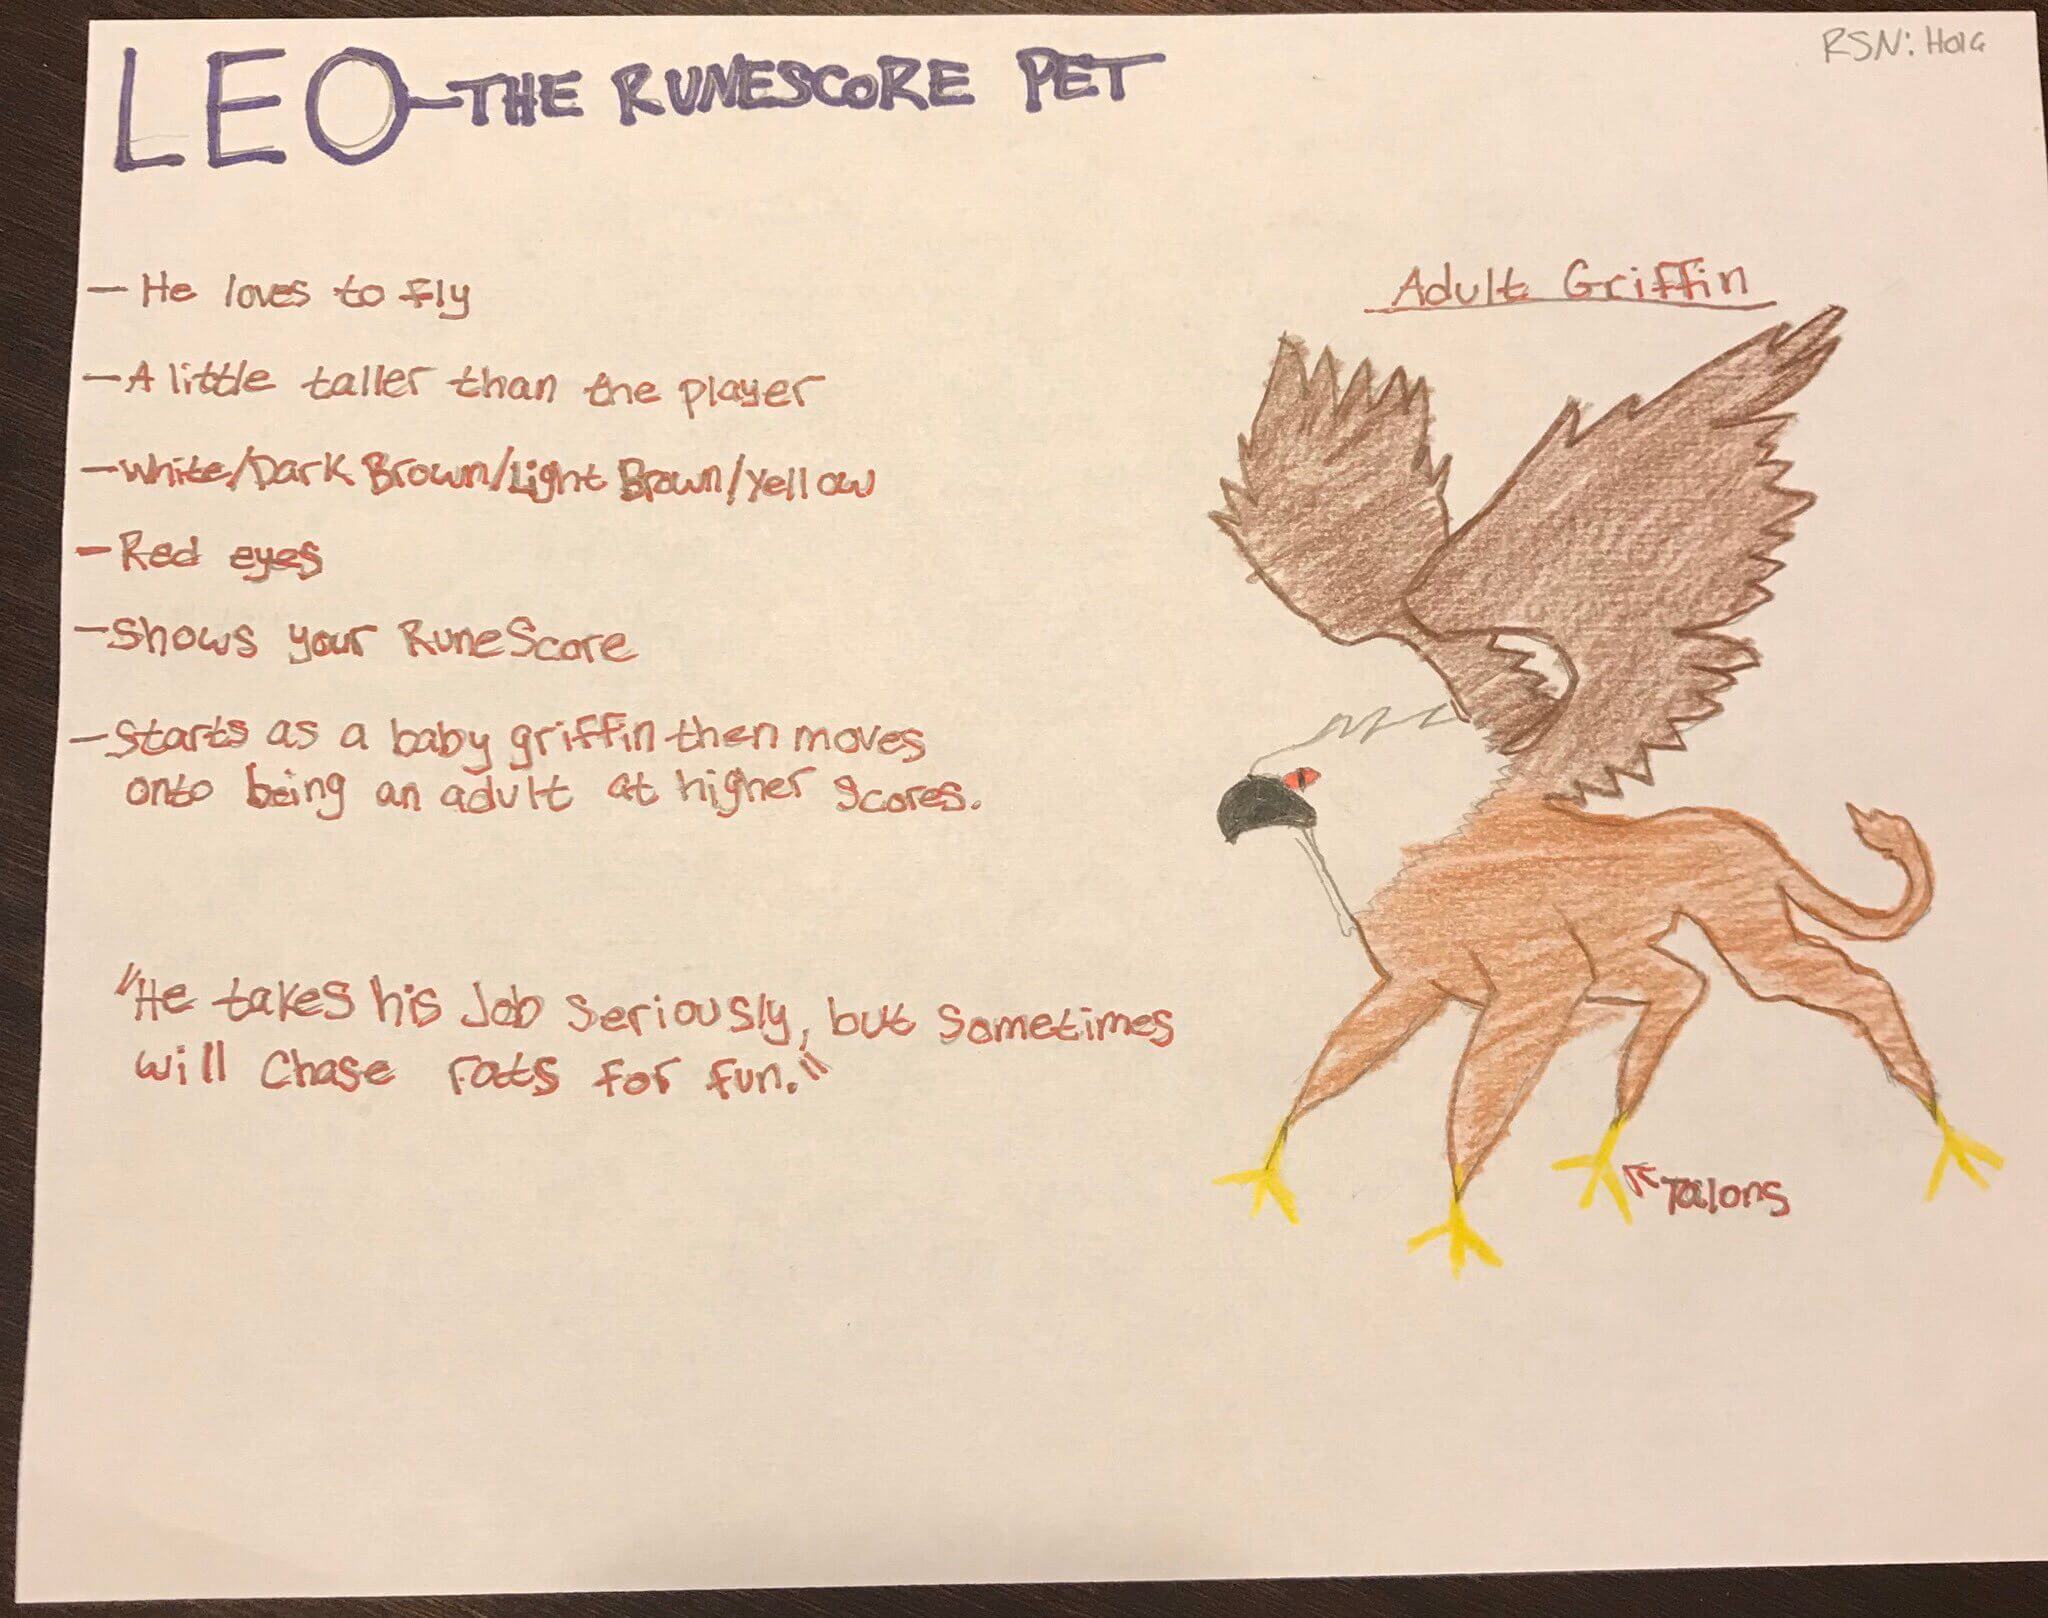 LEO-THE RUNESCORE PET
RSN: Hola
- He loves to fly
- A little taller than the player
- White/Dark Brown/Light Brown/Yellow
- Red eyes
- Shows your RuneScore
- Starts as a baby griffin then moves
onto being an adult at higher scores.
"He takes his Job seriously, but sometimes
will chase rats for fun."
Adult Griffin
Talons